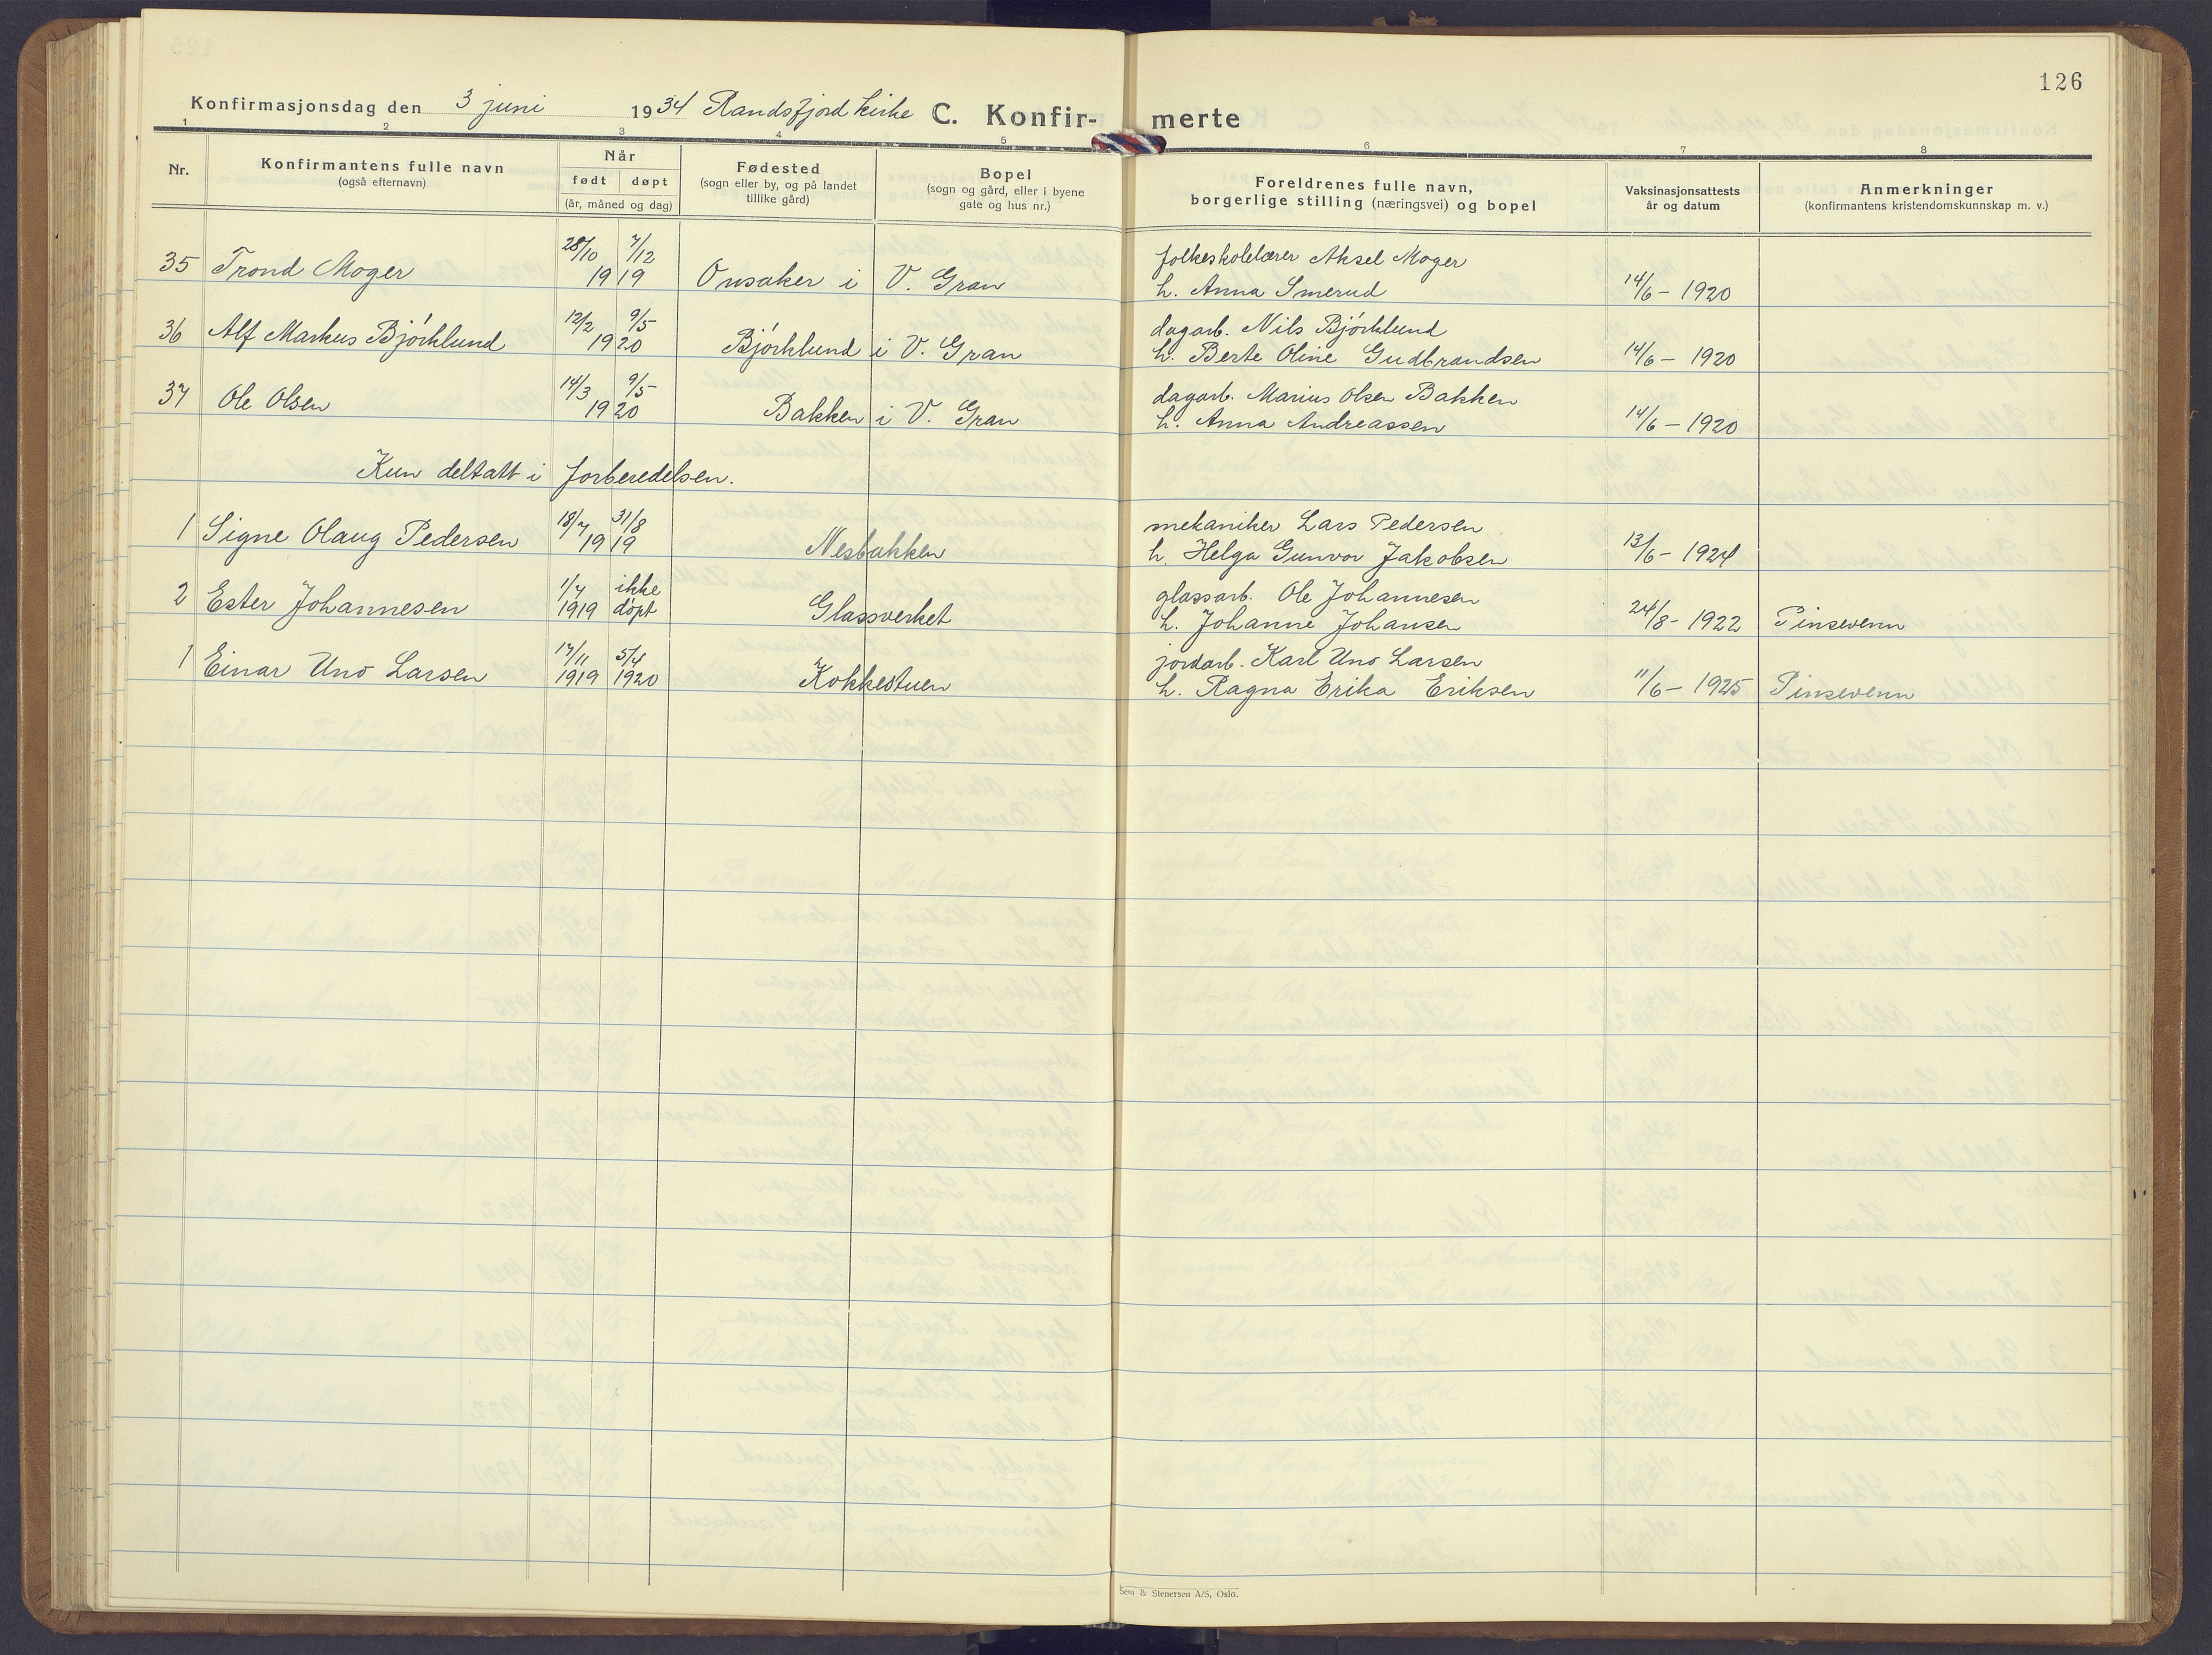 126
Konfirmasjonsdag den 3 juni 1934 Randsfjord kirke C. Konfirmerte
1 2 3 4 5 6 7 8
Nr.
Konfirmantens fulle navn
(også efternavn)
Når
født døpt
(år, måned og dag)
Fødested
(sogn eller by, og på landet
tillike gård)
Bopel
(sogn og gård, eller i byene
gate og hus nr.)
Foreldrenes fulle navn,
borgerlige stilling (næringsvei) og bopel
Vaksinasjonsattests
år og datum
Anmerkninger
(konfirmantens kristendomskunnskap m. v.)
28/10 7/12 folkeskolelærer Aksel Moger
35 Trond Moger 1919 Onsaker i V. Gran h. Anna Smerud 14/6 - 1920
12/2 9/5 dagarb. Nils Bjórklund
36 Alf Markus Bjórklund 1920 Bjórklund i V. Gran h. Berte Oline Gudbrandsen 14/6 - 1920
14/3 9/5 dagarb. Marius Olsen Bakken
37 Ole Olsen 1920 Bakken i V. Gran h. Anna Andreassen 14/6 - 1920
Kun deltatt i forberedelsen.
18/7 31/8 mekaniker Lars Pedersen
1 Signe Olaug Pedersen 1919 Nesbakken h. Helga Gunvor Jakobsen 13/6 - 1924
1/7 ikke glassarb. Ole Johannesen
2 Ester Johannesen 1919 dópt Glassverket h. Johanne Johansen 24/8 - 1922 Pinsevenn
17/11 5/4 jordarb. Karl Uno Larsen
1 Einar Uno Larsen 1919 1920 Kokkestuen h. Ragna Erika Eriksen 11/6 - 1925 Pinsevenn
Sem & Stenersen A/S, Oslo.